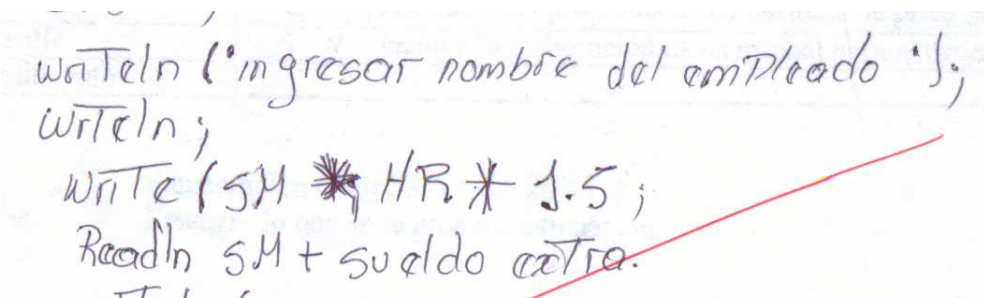 writeln ('ingresar nombre del empleado');
writeln;
write (SM * HR * 1.5;
Readln SM + sueldo extra.